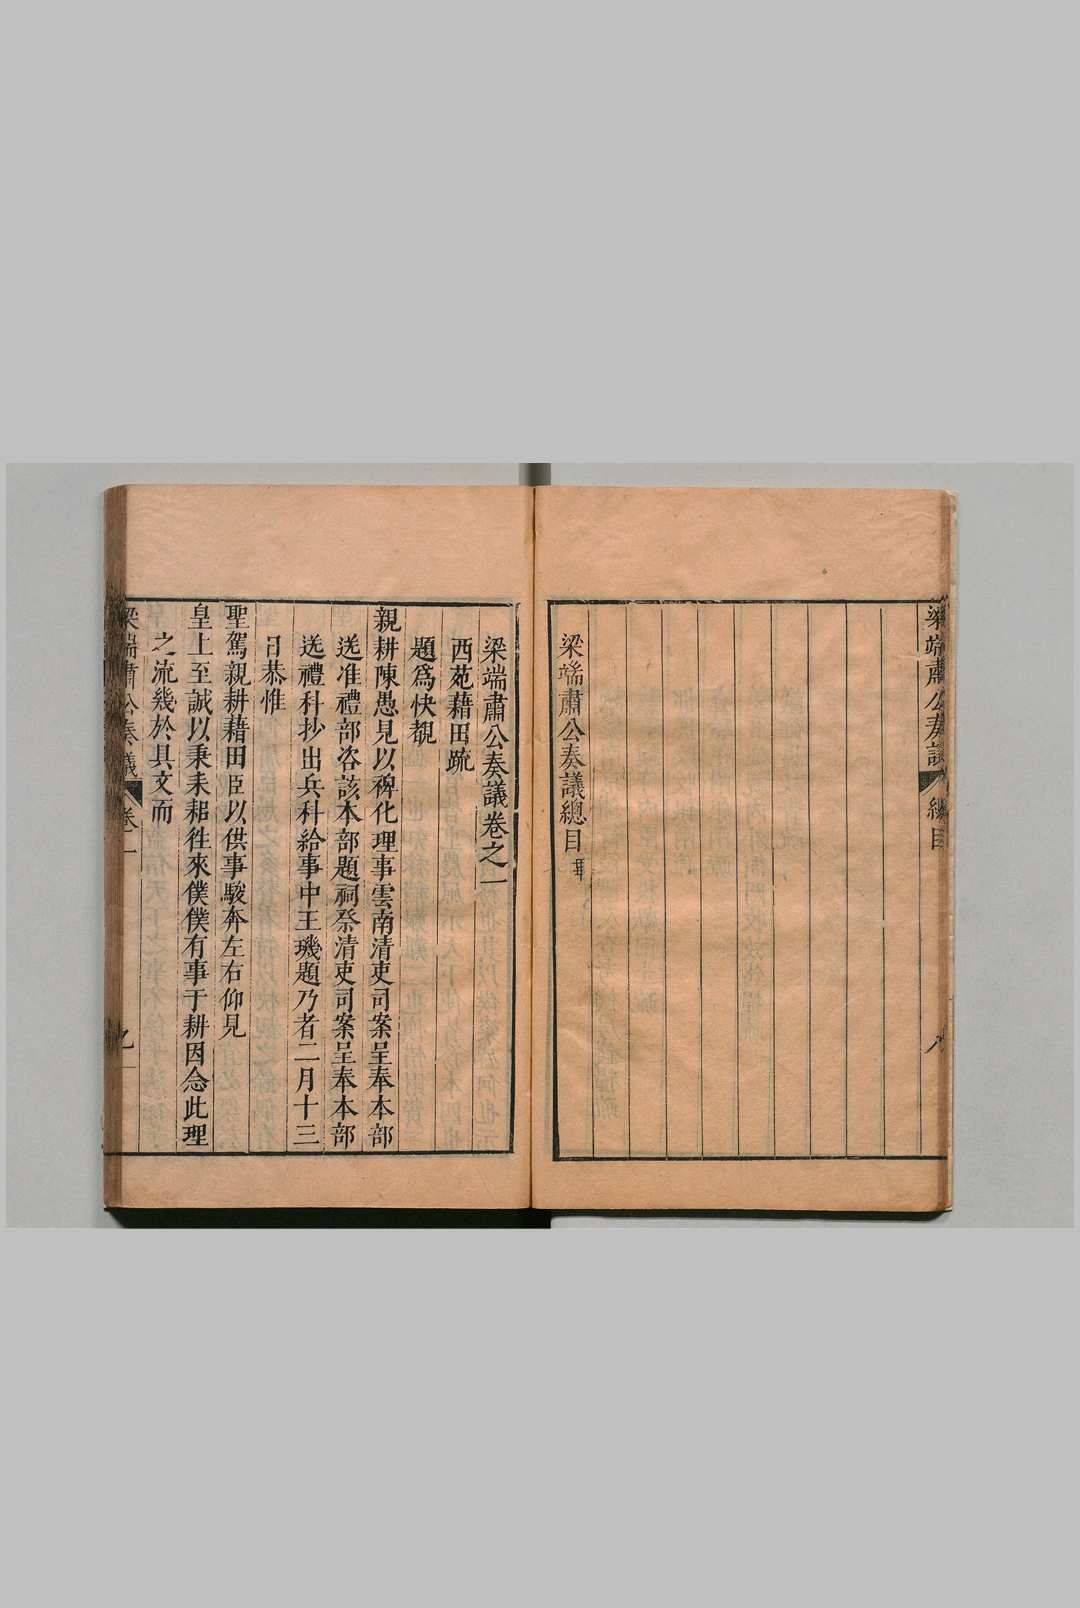 梁端肅公奏議 總目
梁端肅公奏議總目
梁端肅公奏議卷之一
西苑藉田疏
題爲快覩
親耕陳愚見以裨化理事雲南清吏司案呈奉本部
送准禮部咨該本部題祠祭清吏司案呈奉本部
送禮科抄出兵科給事中王璣題乃者二月十三
日恭惟
聖駕親耕藉田臣以供事駿奔左右仰見
皇上至誠以秉耒耜徃來僕僕有事于耕因念此理
之流幾於具文而
梁端肅公奏議 卷一